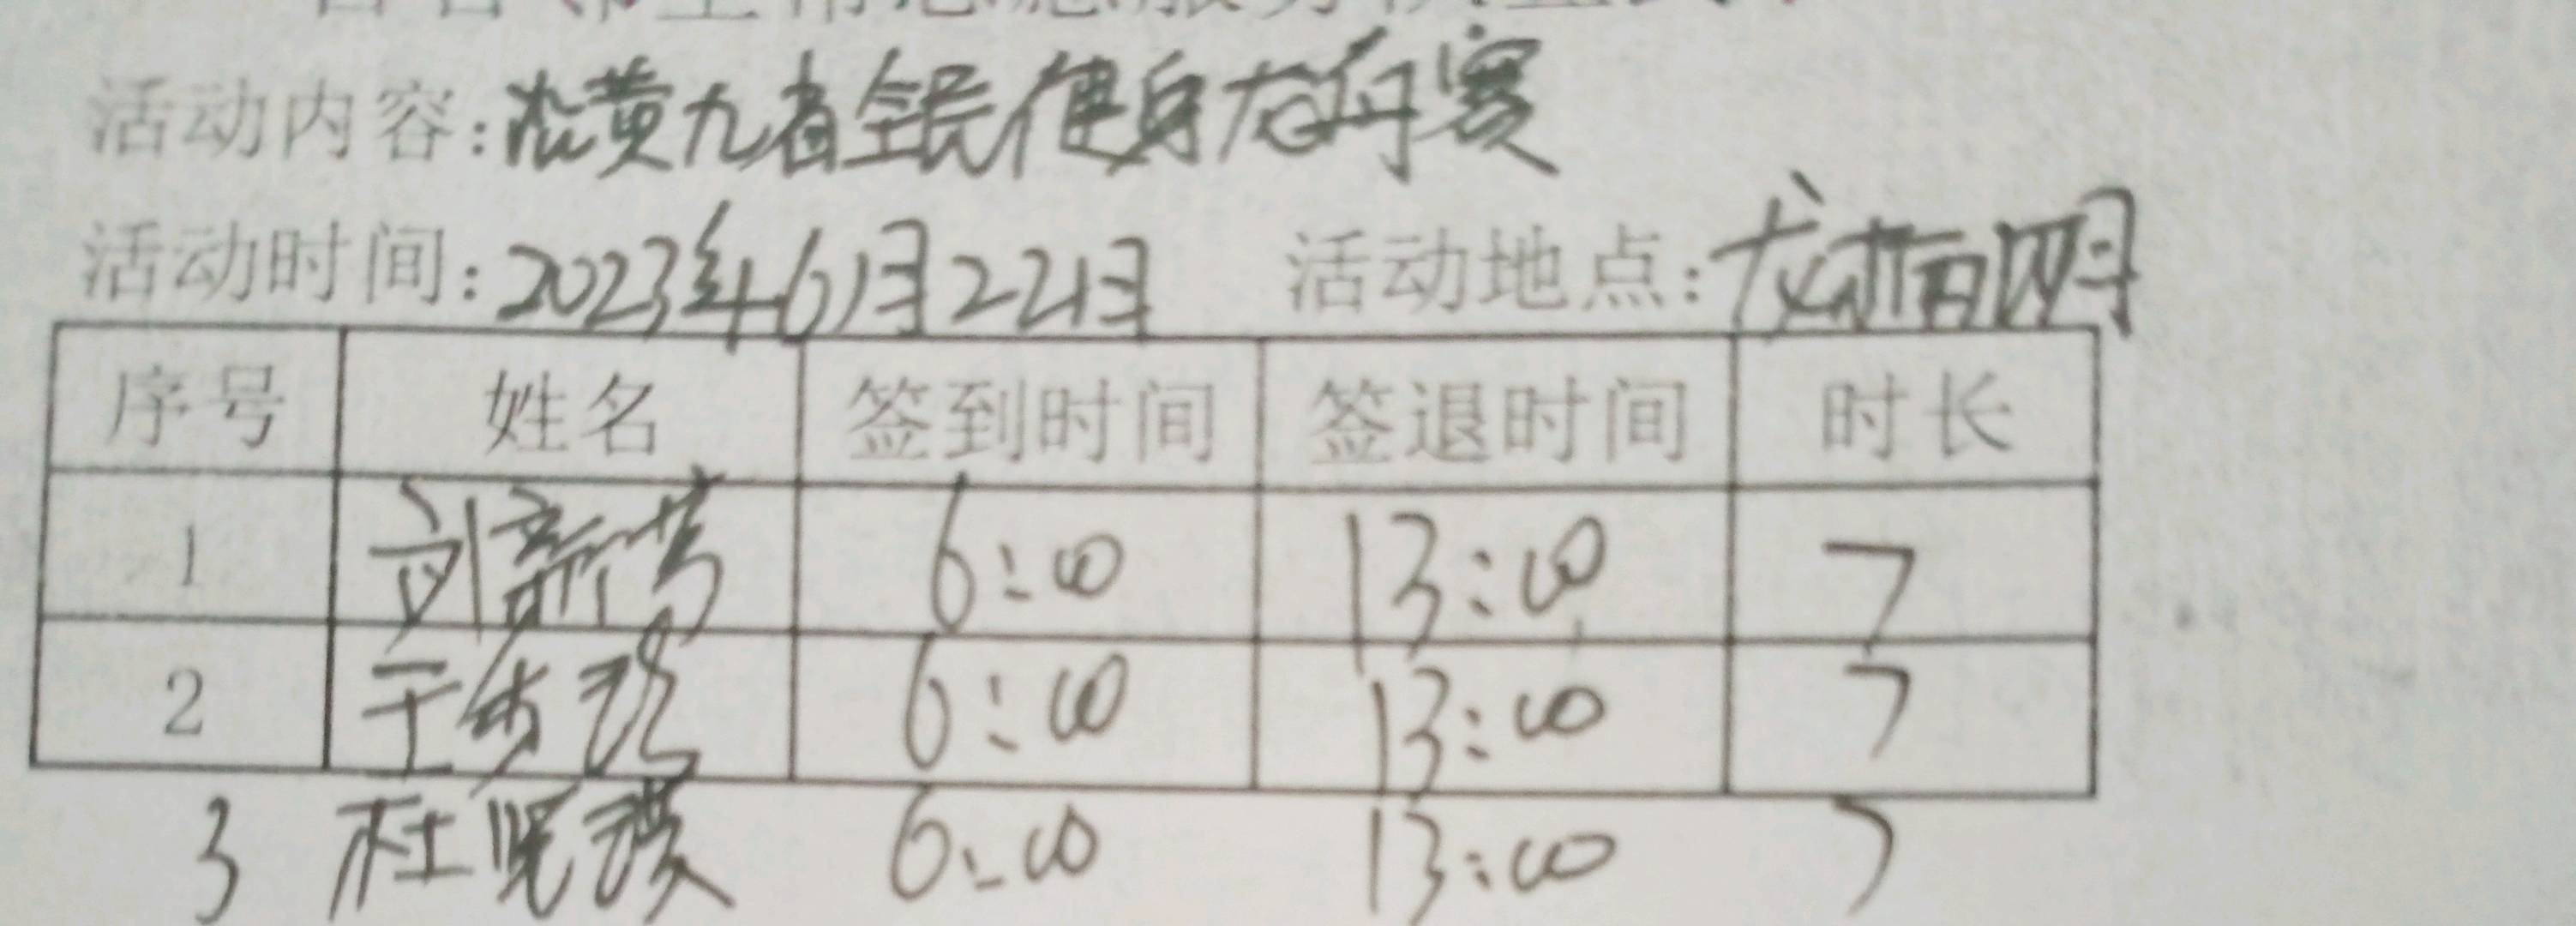 活动内容：沿黄九省全民健身龙舟赛
活动时间：2023年6月22日 活动地点：龙栖湖
序号 姓名 签到时间 签退时间 时长
1 刘新芳 6:00 13:00 7
2 于 6:00 13:00 7
3 杜 6:00 13:00 7